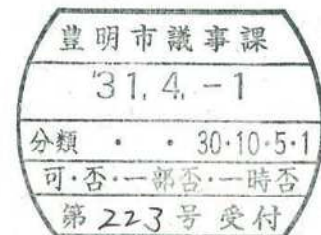 豊明市議事課
'31.4.-1
分類 ・ ・ 30・10・5・1
可・否・一部否・一時否
第223号受付